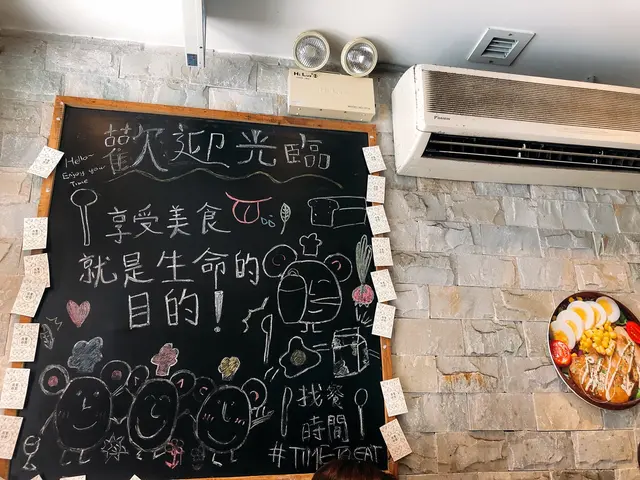 歡迎光臨
Hello~
Enjoy your
Time
享受美食
就是生命的
目的!
找餐
時間
#TIMETOEAT